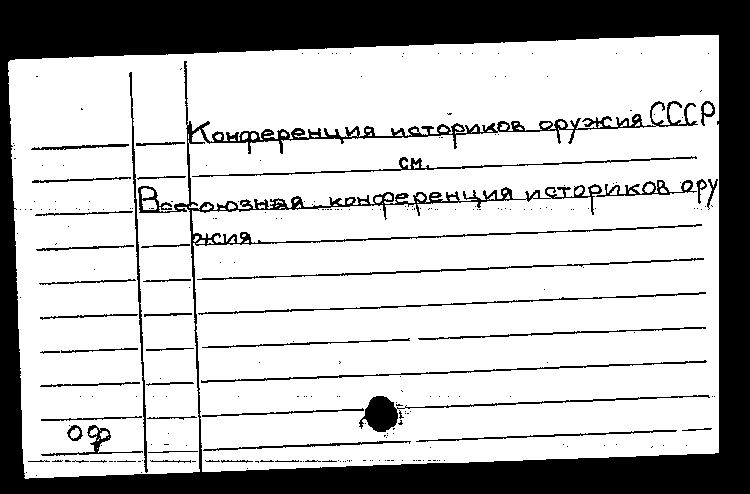 Конференция историков оружия СССР.
см.
Всесоюзная конференция историков ору
жия.
оф